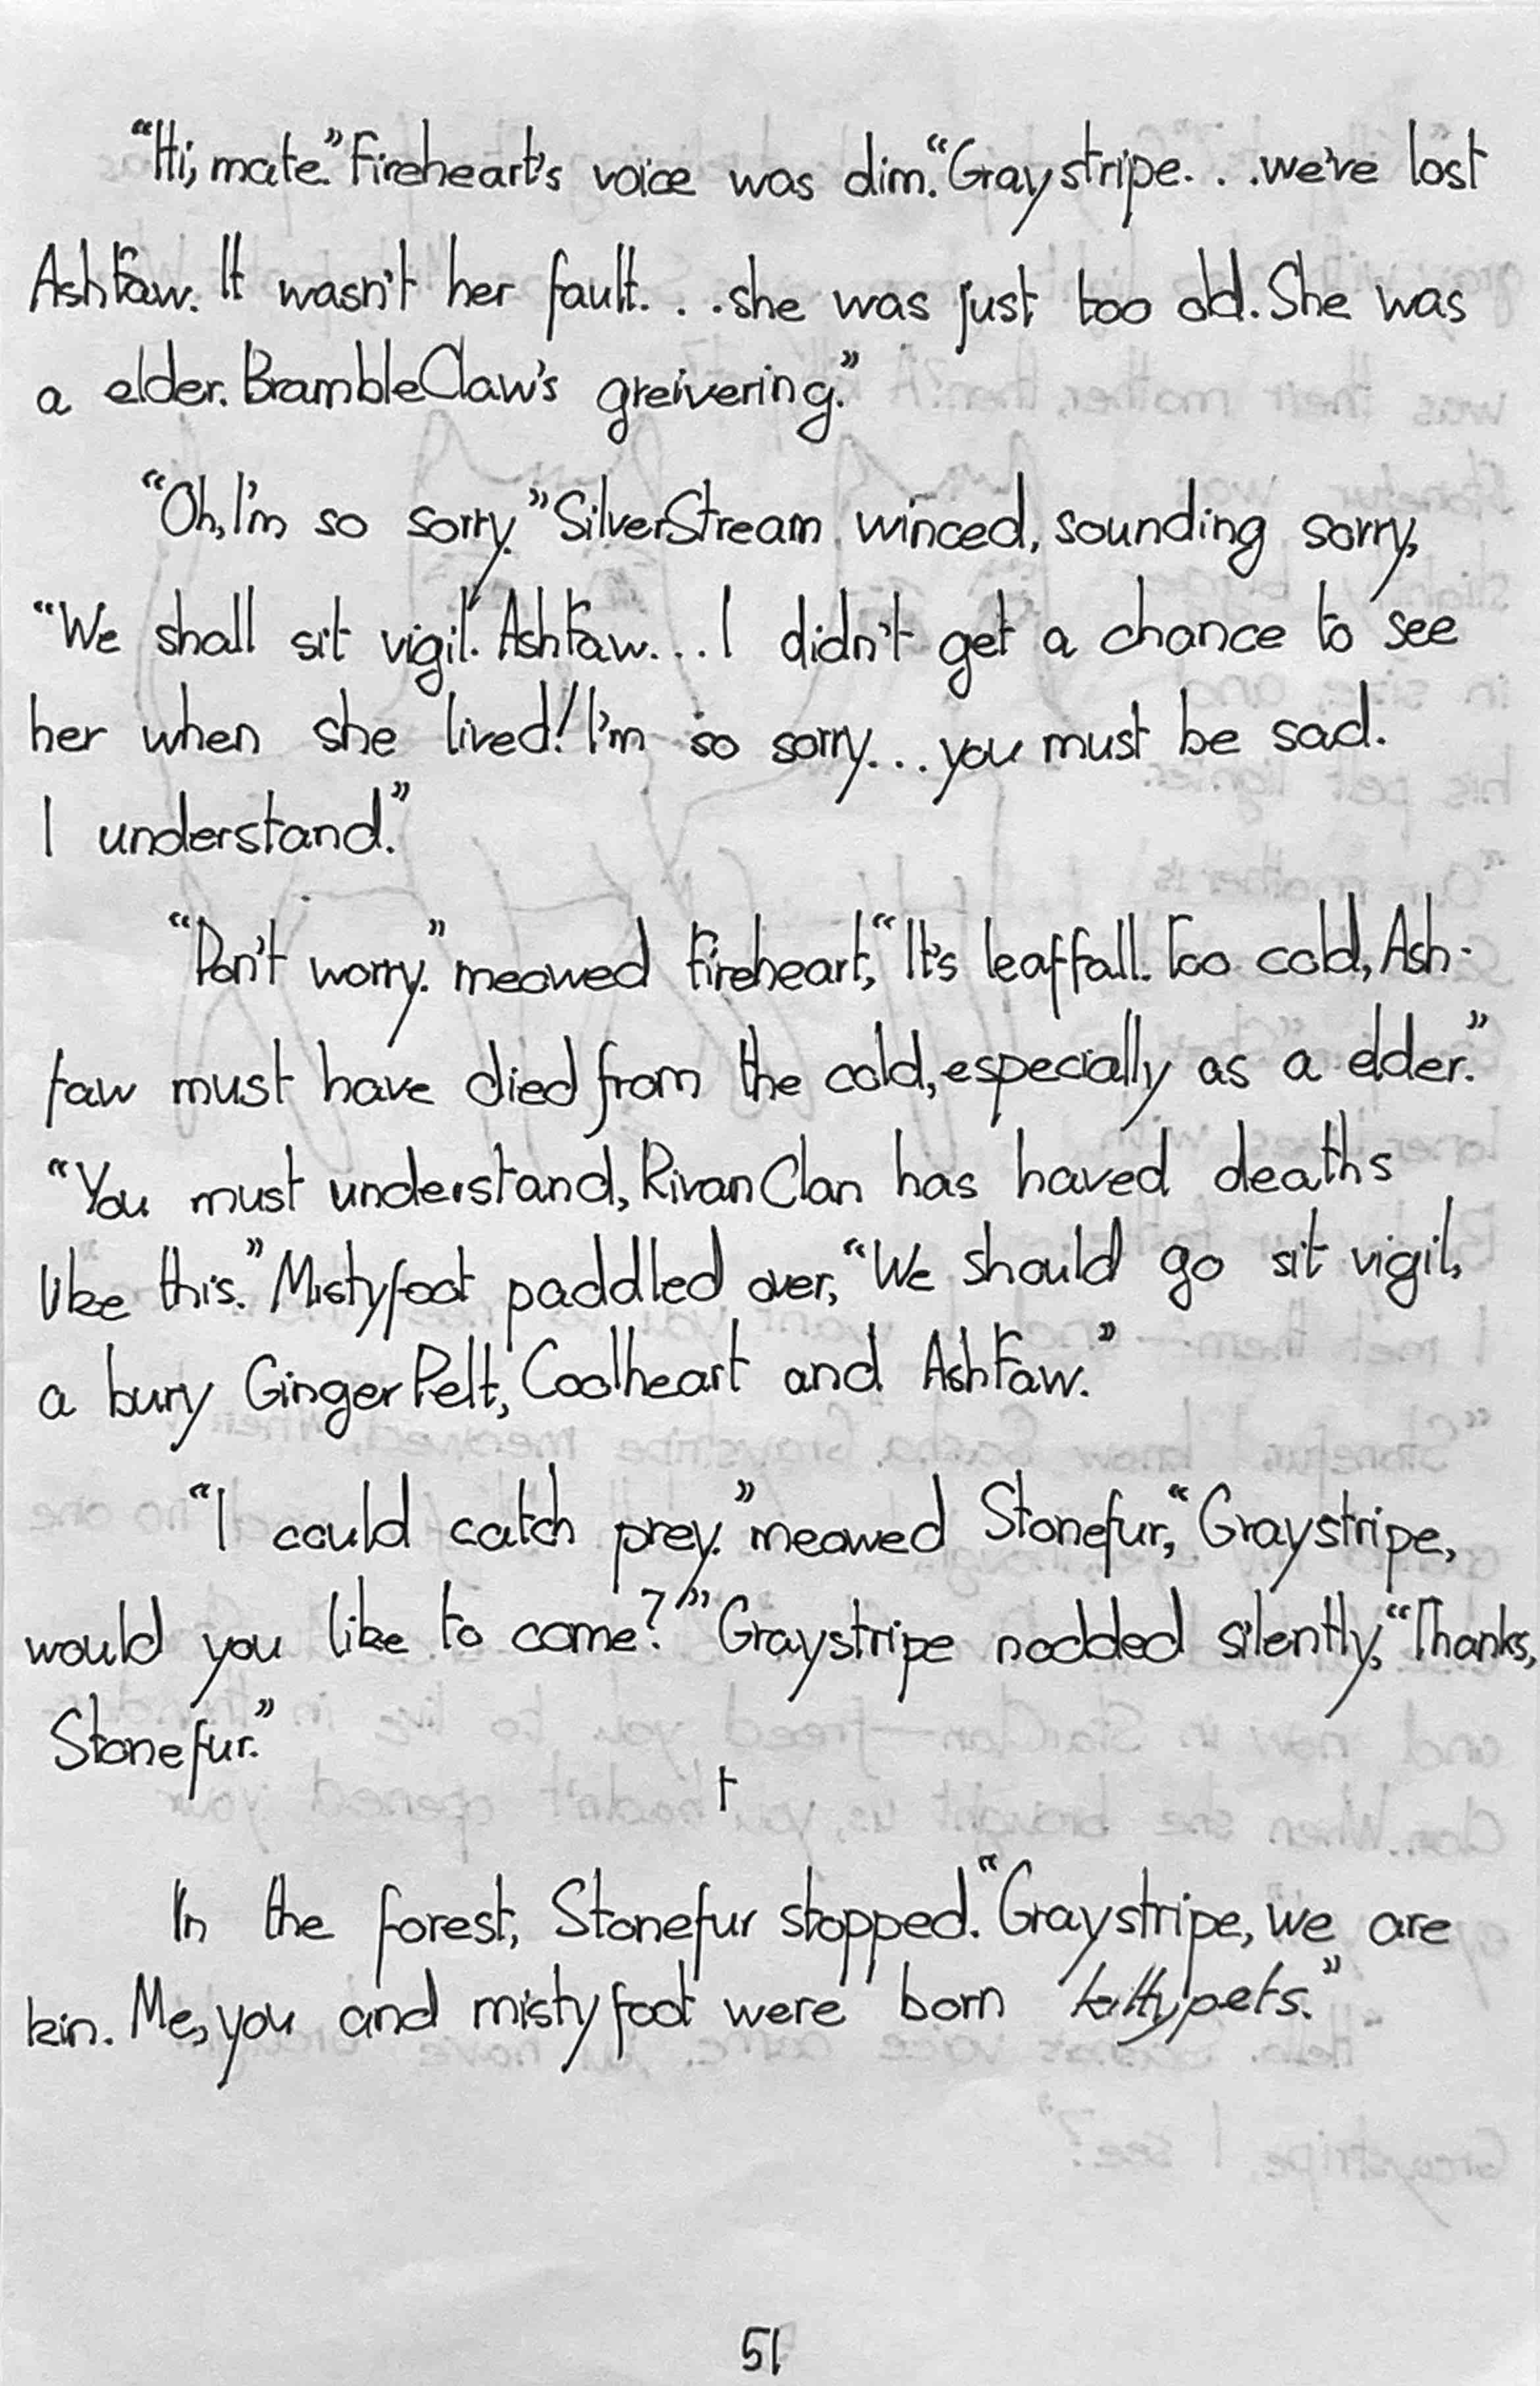 “Hi, mate.” Fireheart's voice was dim. “Graystripe. . .we've lost
AshFaw. It wasn't her fault. . .she was just too old. She was
a elder. BrambleClaw's greivering.”
“Oh, I'm so sorry.” SilverStream winced, sounding sorry,
“We shall sit vigil. AshFaw... I didn't get a chance to see
her when she lived! I'm so sorry...you must be sad.
I understand.”
“Don't worry.” meowed Fireheart, “It's leaffall. Too cold, Ash-
faw must have died from the cold, especially as a elder.”
“You must understand, RivanClan has haved deaths
like this.” Mistyfoot paddled over, “We should go sit vigil,
a bury GingerPelt, Coolheart and AshFaw.”
“I could catch prey.” meowed Stonefur, “Graystripe,
would you like to come?” Graystripe nodded silently, “Thanks,
Stonefur.”
In the forest, Stonefur stopped. “Graystripe, we are
kin. Me, you and mistyfoot were born kittypets.”
51